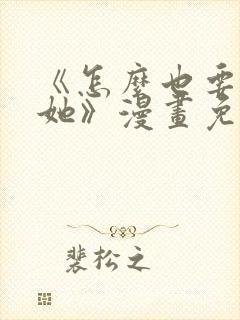 《怎麼也要
她》漫畫免
裴松之